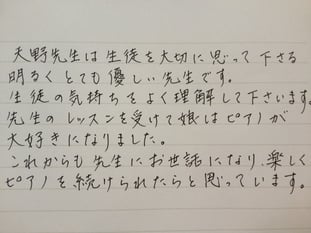 天野先生は生徒を大切に思って下さる
明るくとても優しい先生です。
生徒の気持ちをよく理解して下さいます。
先生のレッスンを受けて娘はピアノが
大好きになりました。
これからも先生にお世話になり、楽しく
ピアノを続けられたらと思っています。